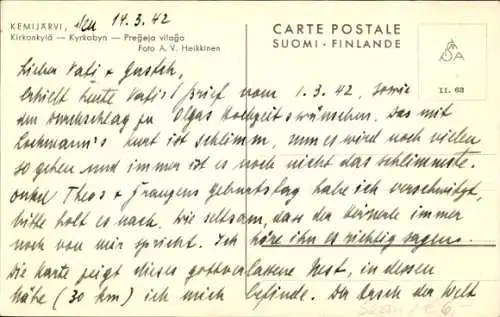 KEMIJÄRVI, den 14.3.42
Kirkonkylä — Kyrkobyn — Preĝeja vilaĝo
Foto A. V. Heikkinen
CARTE POSTALE
SUOMI - FINLANDE
11. 63
Lieber Vati & Gustch,
erhielt heute Vatis Brief vom 1.3.42, sowie
den Durchschlag für Olgas Hochzeitswünschen. Das mit
Lochmann's Kurt ist schlimm, nun es wird noch vielen
so gehen und immer ist es noch nicht das schlimmste.
Onkel Theos & Franzens Geburtstag habe ich verschwitzt,
bitte holt es nach. Wie seltsam, dass der immer
noch von mir spricht. Ich höre ihn es richtig sagen.
Die Karte zeigt dieses gottverlassene Nest, in dessen
Nähe (30 km) ich mich befinde. Der Arsch der Welt
€ 6,-